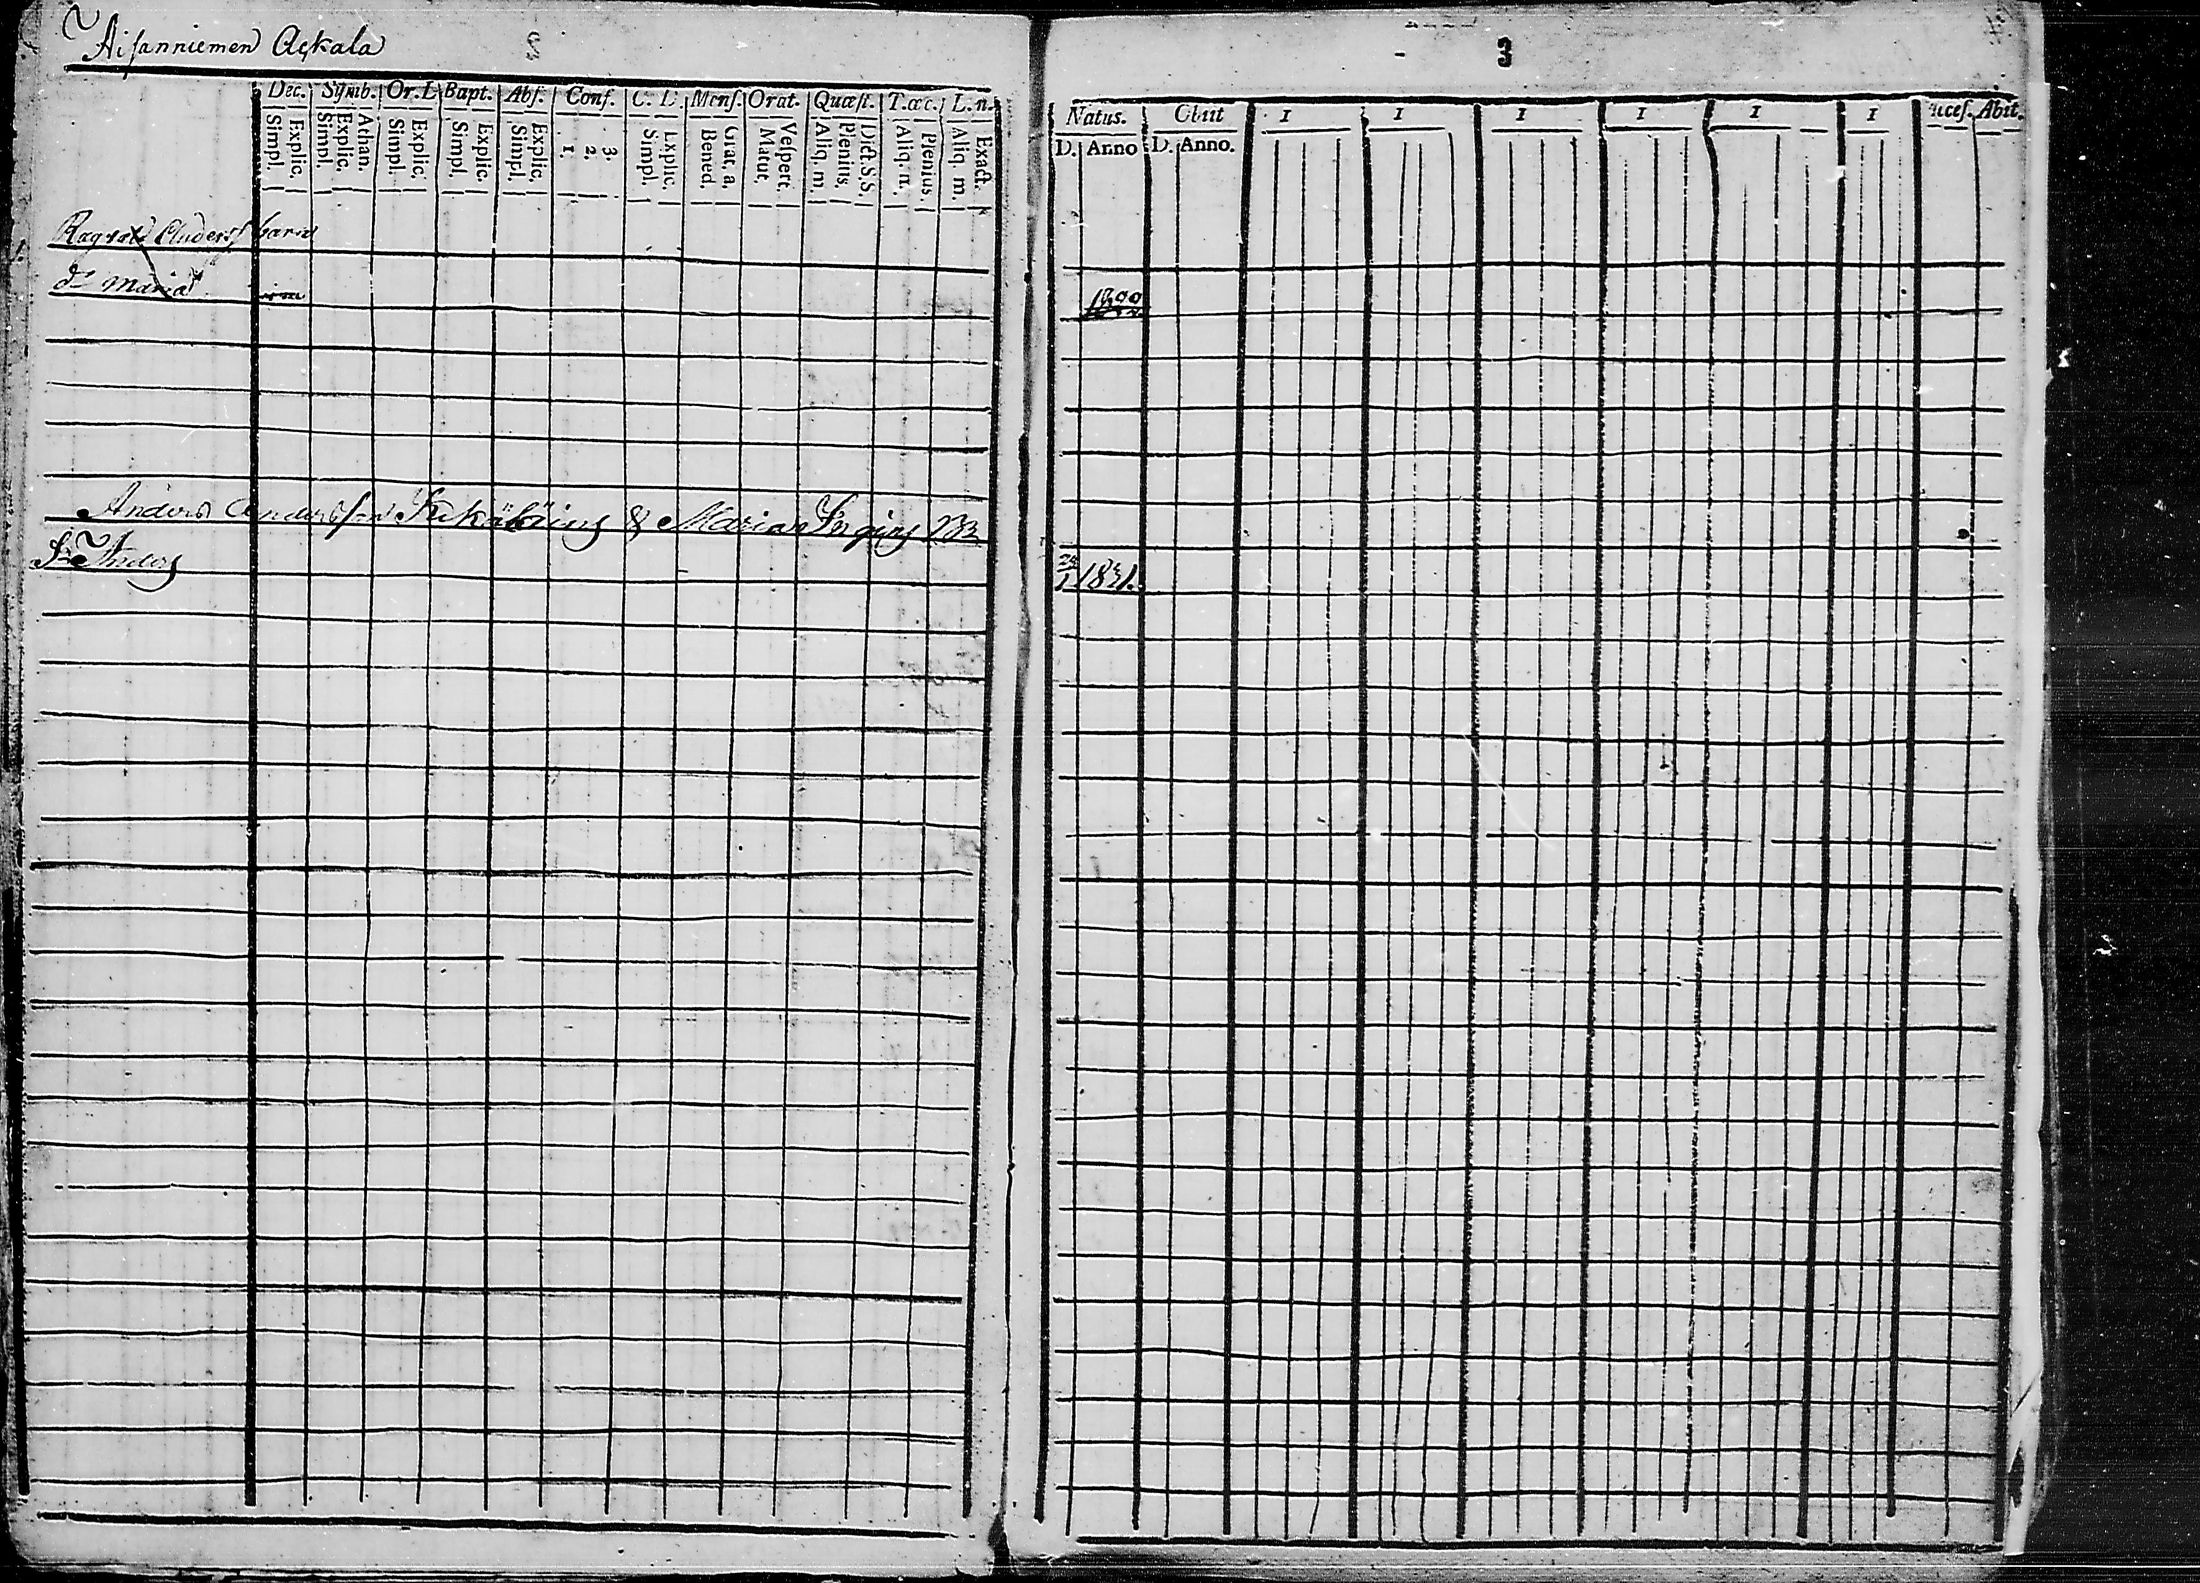 Aisanniemen Askala
3
Dec. Symb. Or. D Bapt. Abs. Conf. C. D Mens. Orat. Quæst. T. œc. L. n.
Simpl. Explic. Simpl. Explic. Athan. Simpl. Explic. Simpl. Explic. Simpl. Explic. 1. 2. 3. Simpl. Explic. Bened. Grat. a. Matut. Vespert. Aliq. m. Plenius. Dict. S.S. Aliq. m. Plenius. Aliq. m. Exact.
Natus. Obiit 1 1 1 1 1 1 Acces. Abit.
D. Anno D. Anno.
barn
dr Maria 1800
Anders Andersson & Maria
Sn Anders 1831.